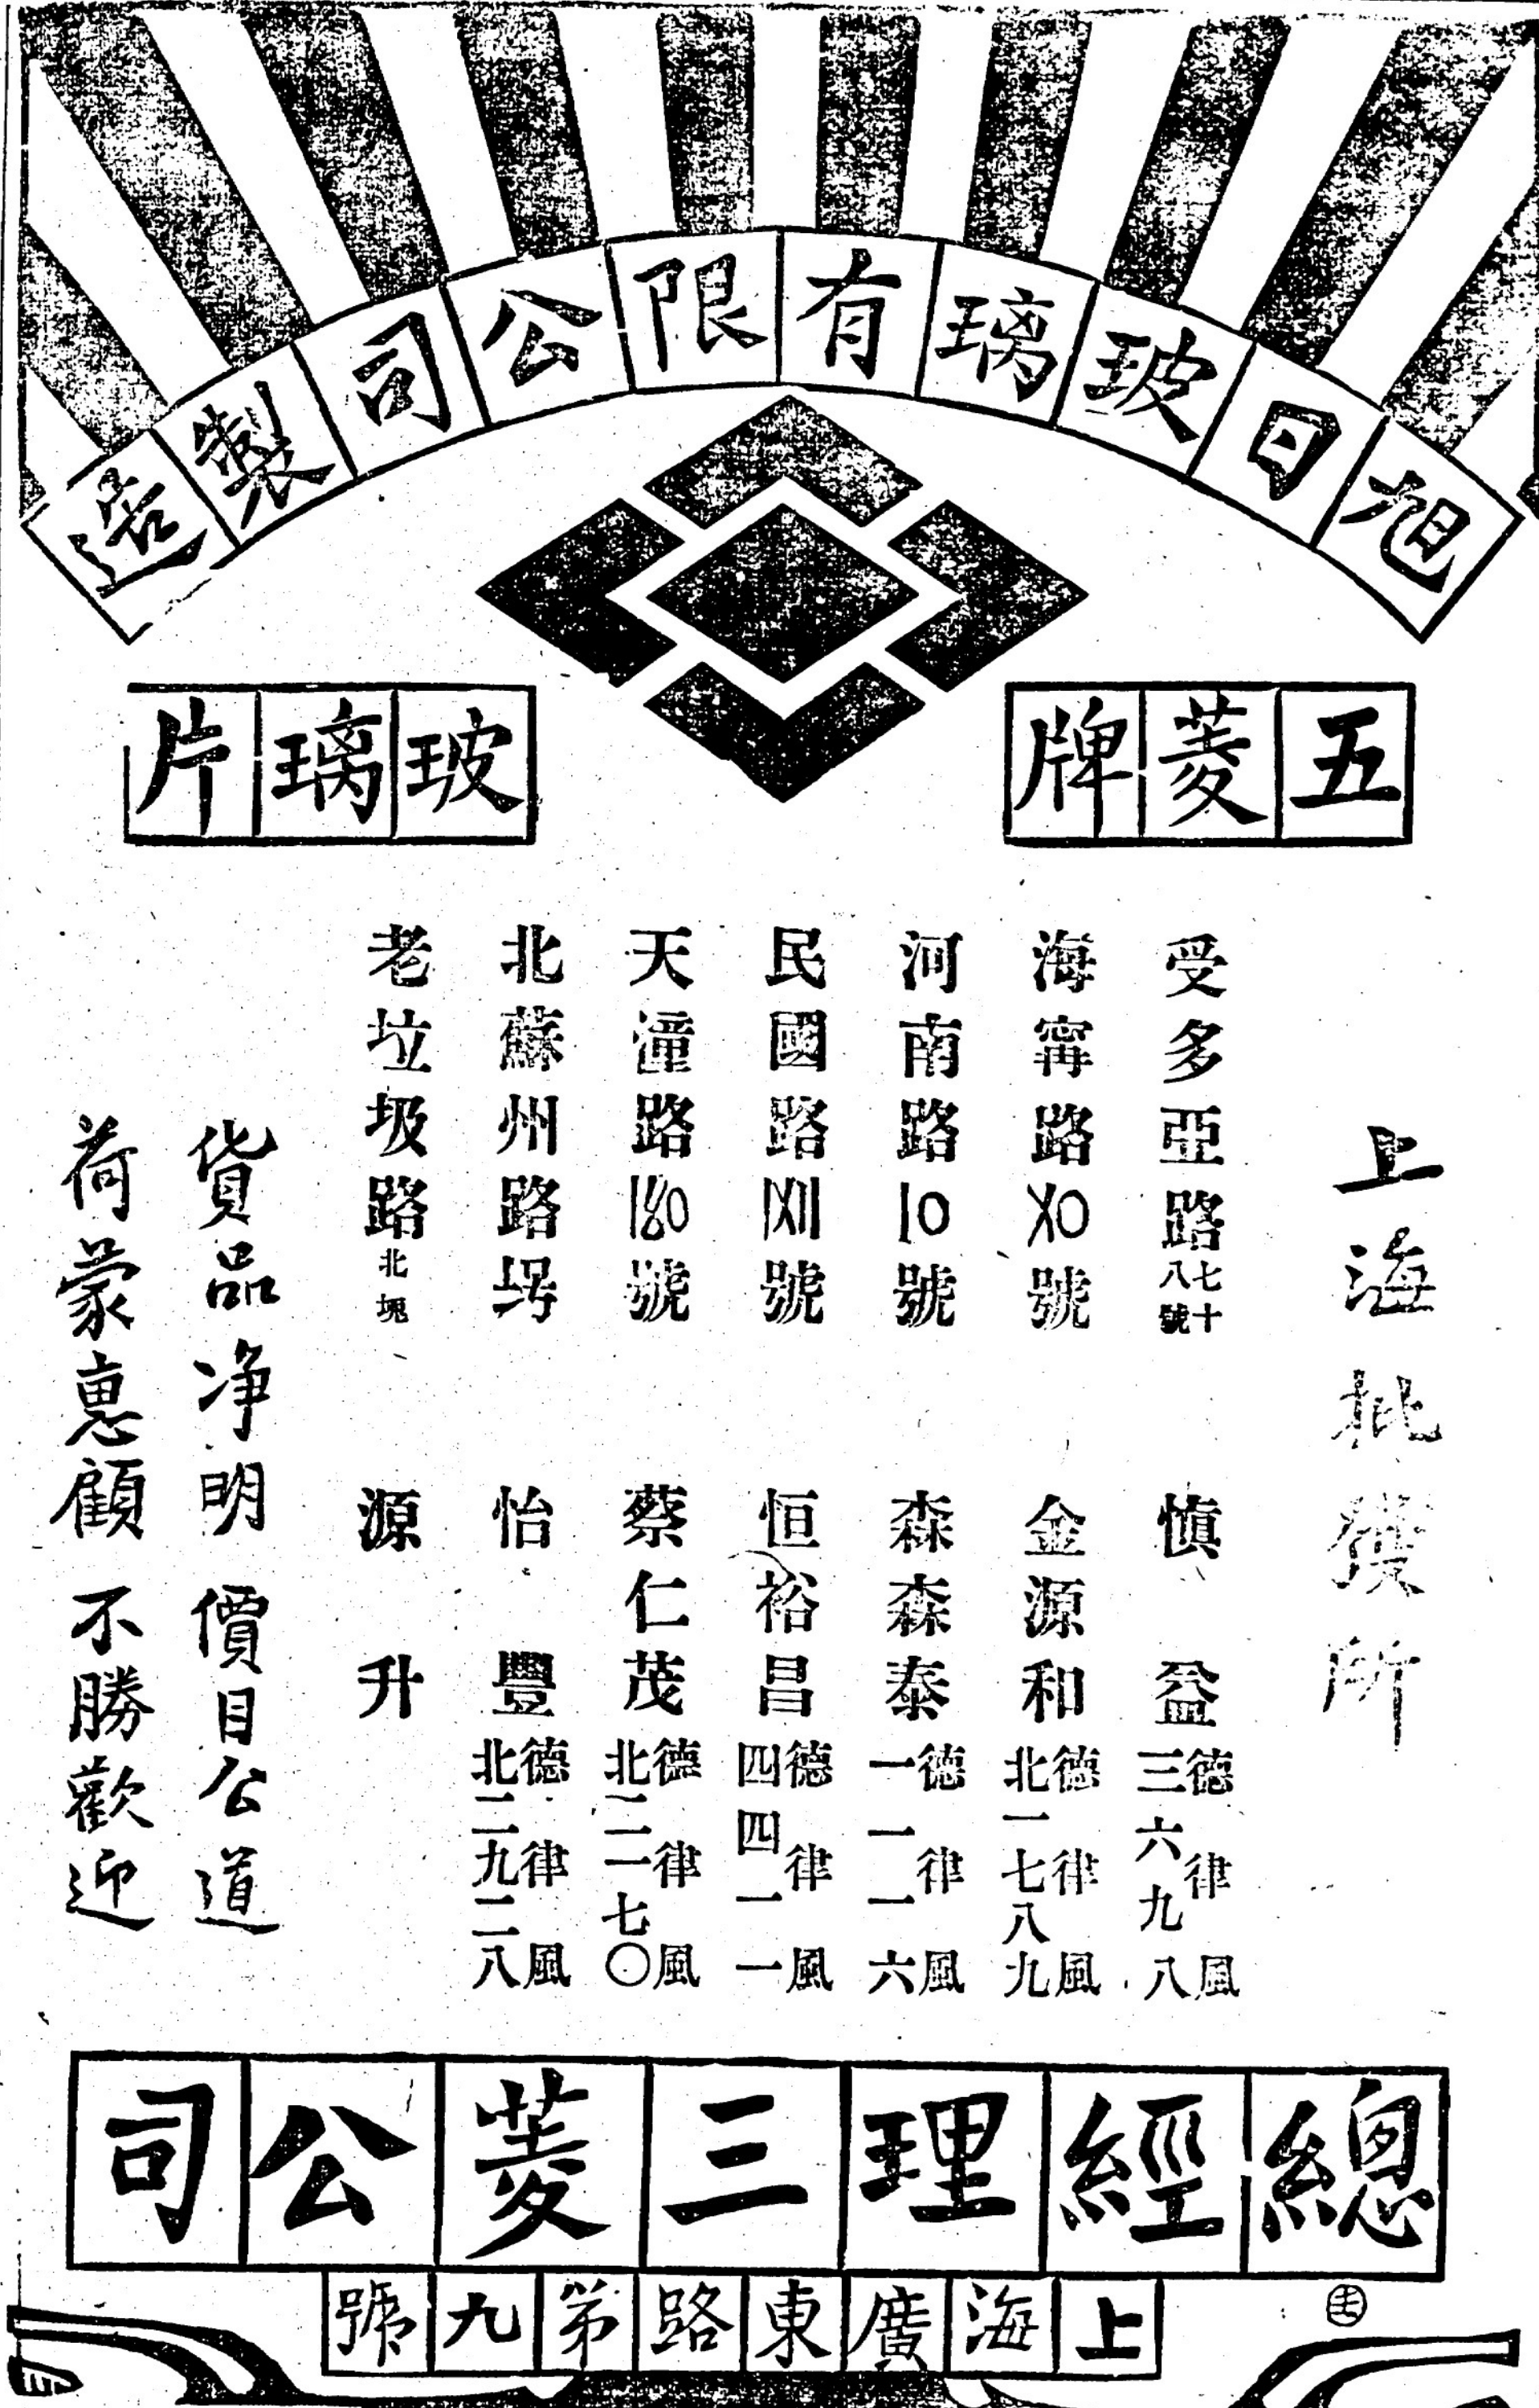 旭日玻璃有限公司製造
五菱牌
玻璃片
上海批發所
受多亞路七十八號 慎益 德律風三六九八
海甯路X0號 金源和 德律風北一七八九
河南路10號 森森泰 德律風一一一六
民國路號 恒裕昌 德律風四四一一
天潼路180號 蔡仁茂 德律風北二一七〇
北蘇州路 怡豐 德律風北二九二八
老垃圾路北堍 源升
貨品净明 價目公道
荷蒙惠顧 不勝歡迎
總經理三菱公司
上海廣東路第九號